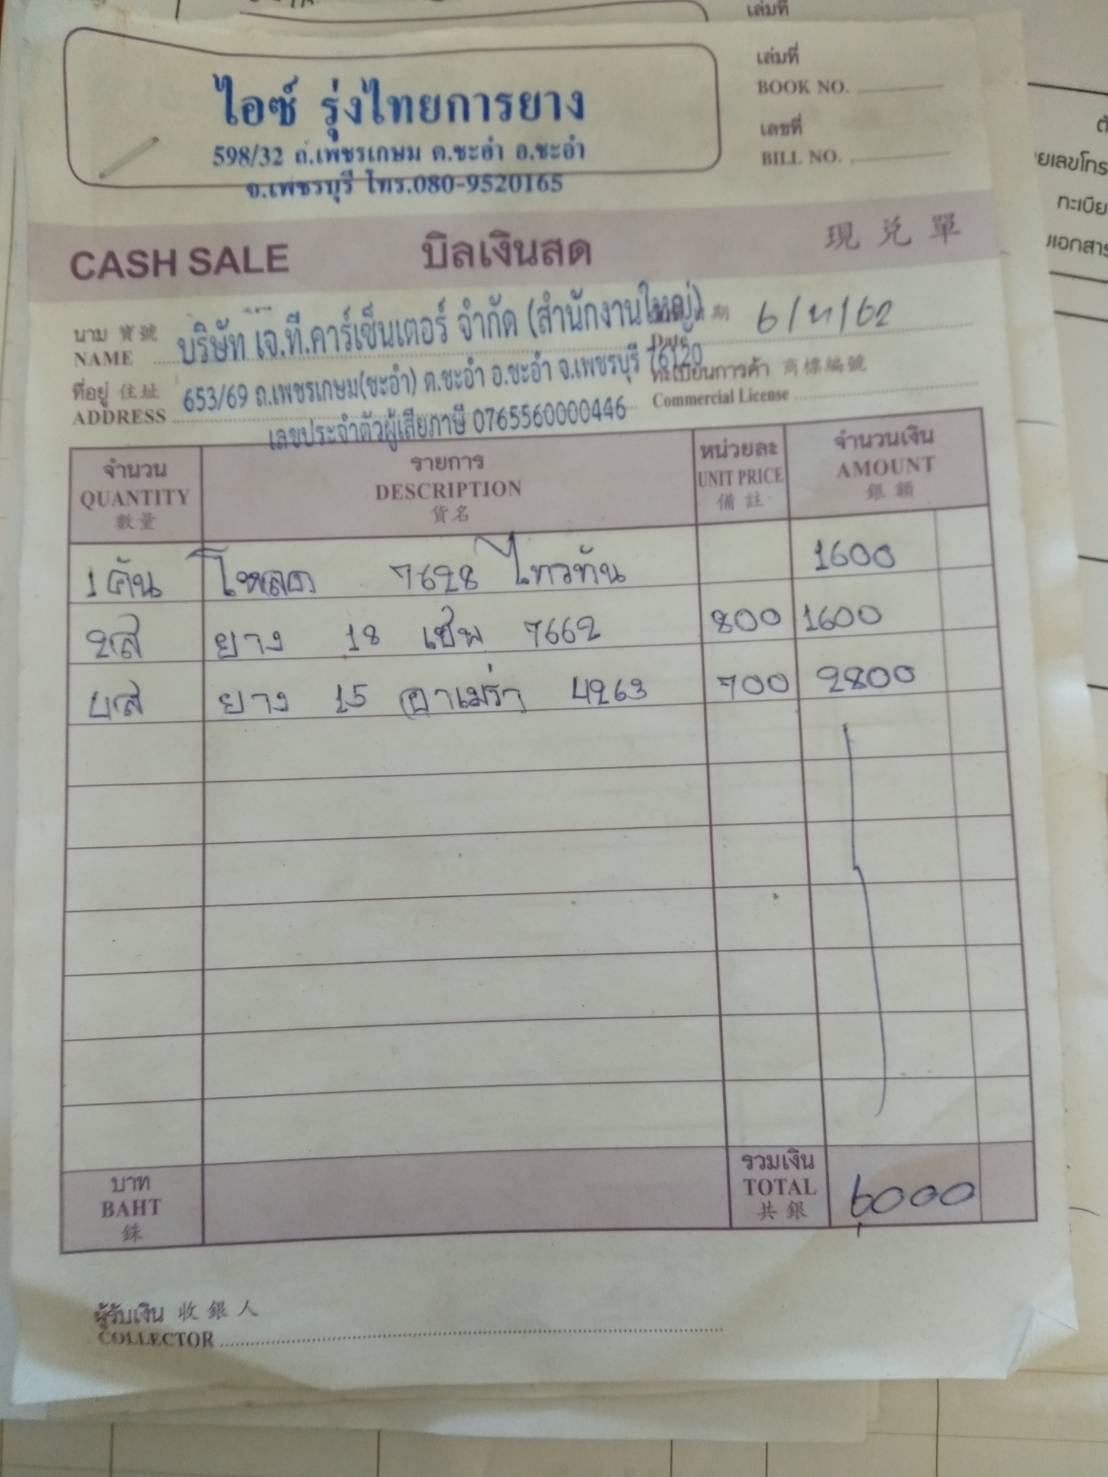 เล่มที่
ไอซ์ รุ่งไทยการยาง
598/32 ถ.เพชรเกษม ต.ชะอำ อ.ชะอำ
จ.เพชรบุรี โทร.080-9520165
เล่มที่
BOOK NO.
เลขที่
BILL NO.
CASH SALE บิลเงินสด 現兌單
นาม 寶號 NAME บริษัท เจ.ที.คาร์เซ็นเตอร์ จำกัด (สำนักงานใหญ่) 期 Date 6/11/62
ที่อยู่ 住址 ADDRESS 653/69 ถ.เพชรเกษม(ชะอำ) ต.ชะอำ อ.ชะอำ จ.เพชรบุรี 76120
ทะเบียนการค้า 商標編號
Commercial License
เลขประจำตัวผู้เสียภาษี 0765560000446
จำนวน รายการ หน่วยละ จำนวนเงิน
QUANTITY DESCRIPTION UNIT PRICE AMOUNT
數量 貨名 備註 銀額
1 คัน โหลด 7628 ไททัน 1600
2 ส 18 7662 800 1600
ยาง
4 ส ยาง 15 4263 700 2800
บาท BAHT 銖
รวมเงิน TOTAL 共銀 6000
ผู้รับเงิน 收銀人
COLLECTOR
ทะเบีย